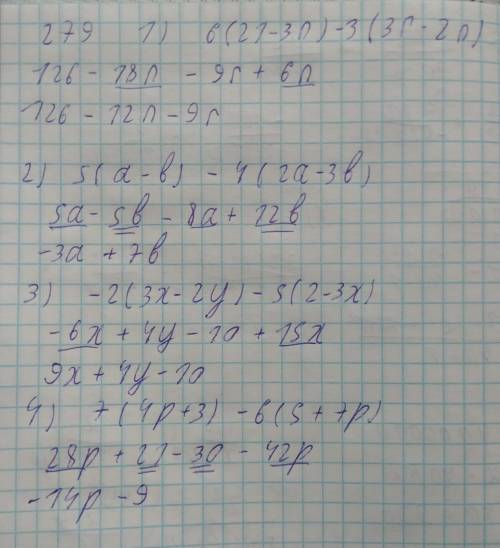 279 1) 6(21-3п)-3(3г-2п)
126 - 18п - 9г + 6п
126 - 12п - 9г
2) 5(a-в) - 4(2a-3в)
5a - 5в - 8a + 12в
-3a + 7в
3) -2(3x-2y)-5(2-3x)
-6x + 4y - 10 + 15x
9x + 4y - 10
4) 7(4p+3) -6(5+7p)
28p + 21 - 30 - 42p
-14p - 9